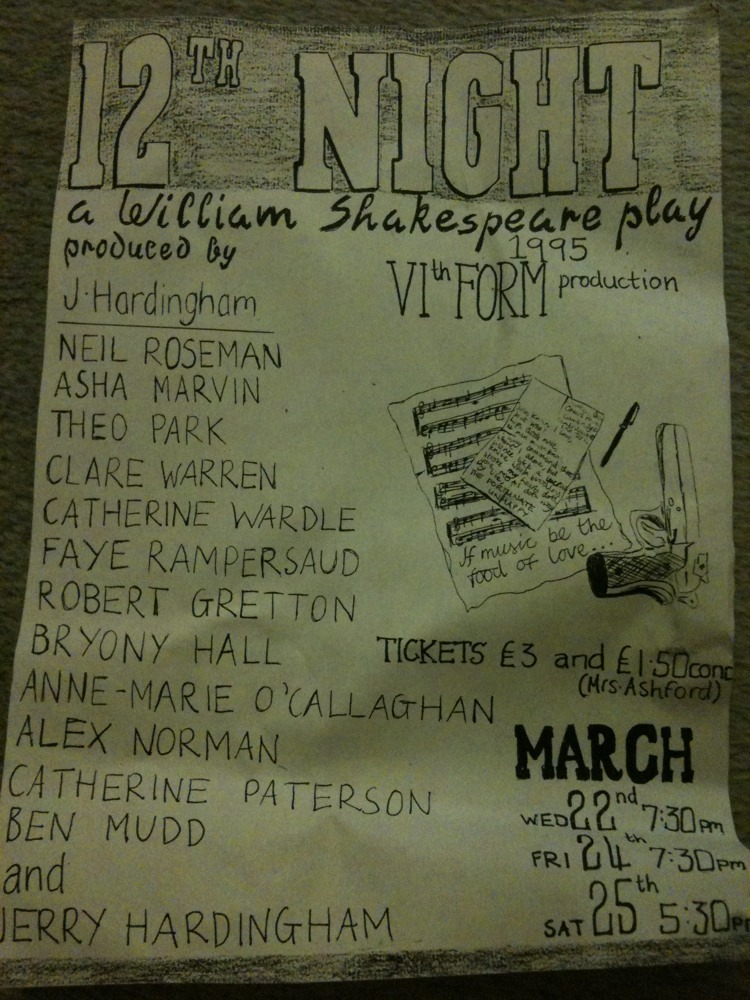 12TH NIGHT
a William Shakespeare play
produced by
J. Hardingham
1995
VIth FORM production
NEIL ROSEMAN
ASHA MARVIN
THEO PARK
CLARE WARREN
CATHERINE WARDLE
FAYE RAMPERSAUD
ROBERT GRETTON
BRYONY HALL
ANNE-MARIE O'CALLAGHAN
ALEX NORMAN
CATHERINE PATERSON
BEN MUDD
and
JERRY HARDINGHAM
If music be the
food of love...
TICKETS £3 and £1.50 conc
(Mrs. Ashford)
MARCH
WED 22nd 7:30pm
FRI 24th 7:30pm
SAT 25th 5:30p